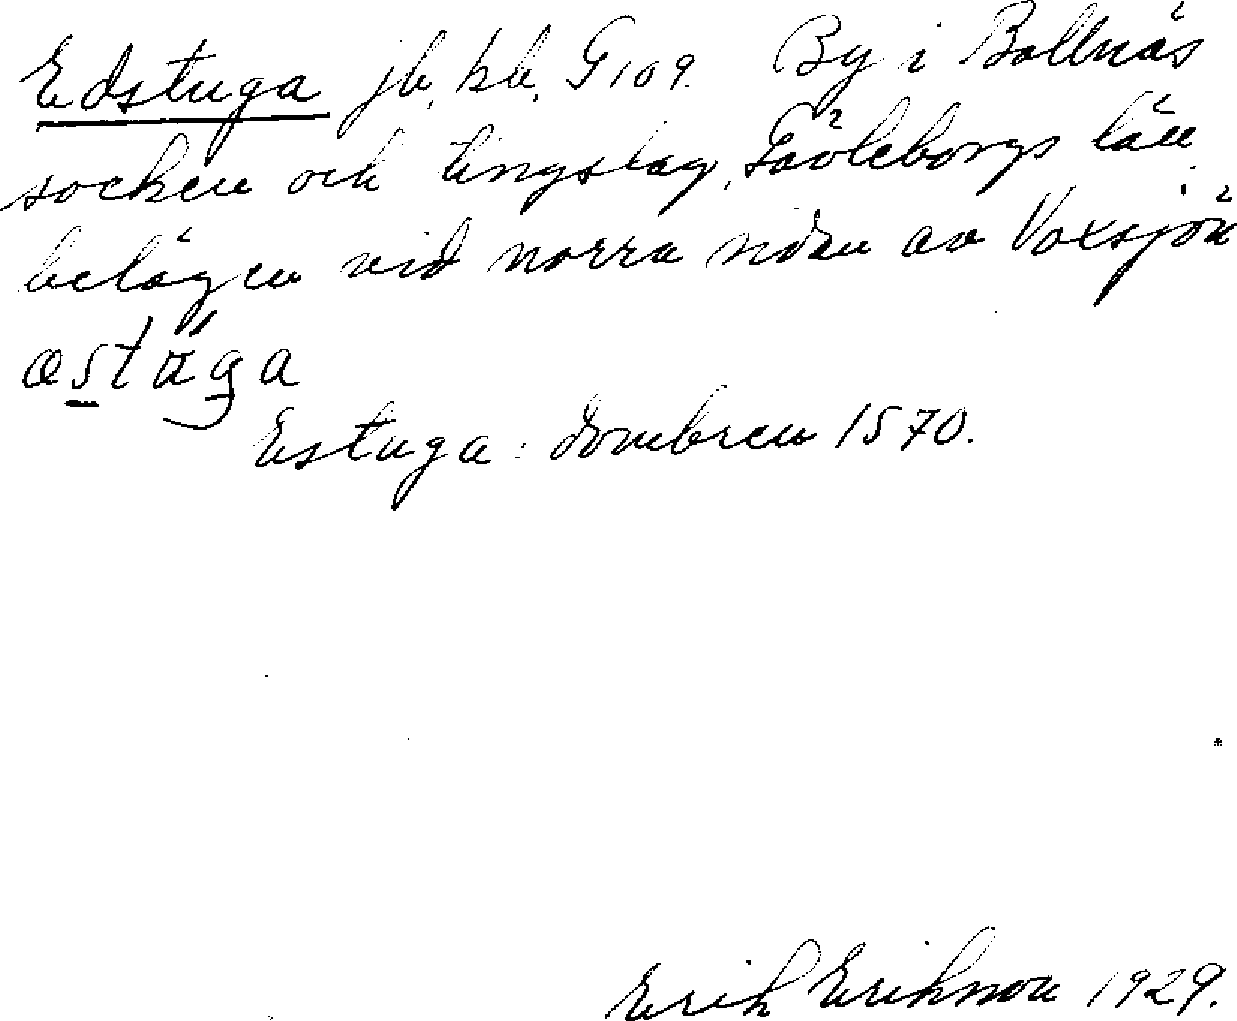 Edstuga jb, kb, G 109. By i Bollnäs
socken och tingslag, Gävleborgs län
belägen vid norra sidan av Voxsjön
æstäga
Estuga: dombren 1570.
Erik Erikson 1929.